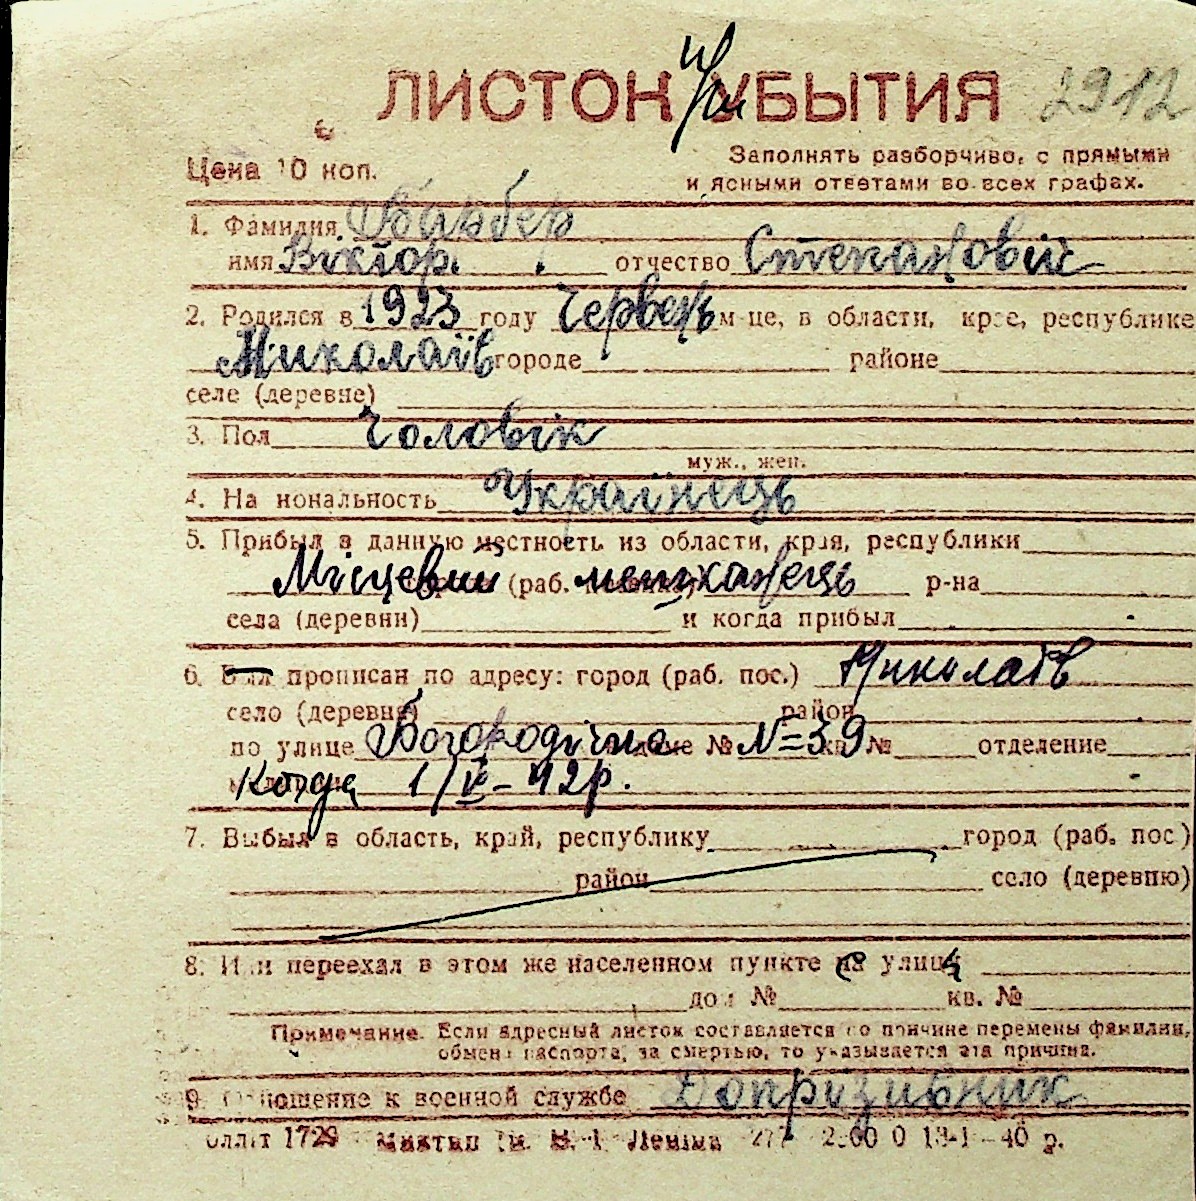 ЛИСТОК УБЫТИЯ 2912
Цена 10 коп.
Заполнять разборчиво, с прямыми
и ясными ответами во всех графах.
1. Фамилия
имя Віктор. отчество Степановіч
2. Родился в 1923 году Червень м-це, в области, крае, республике
Миколаїв городе районе
селе (деревне)
3. Пол Чоловік
муж., жен.
4. Национальность Українець
5. Прибыл в данную местность из области, края, республики
Місцевий (раб. мешканець р-на
села (деревни) и когда прибыл
6. Был прописан по адресу: город (раб. пос.) Миколаїв
село (деревня) район
по улице доме № N=39 кв. № отделение
Когда 1/V - 42р.
7. Выбыл в область, край, республику город (раб. пос)
район село (деревню)
8. Или переехал в этом же населенном пункте на улицу
дом № кв. №
Примечание. Если адресный листок составляется по причине перемены фамилии,
обмена паспорта, за смертью, то указывается эта причина.
9. Отношение к военной службе Допризивник
1729 Ленина 13-1-40 р.